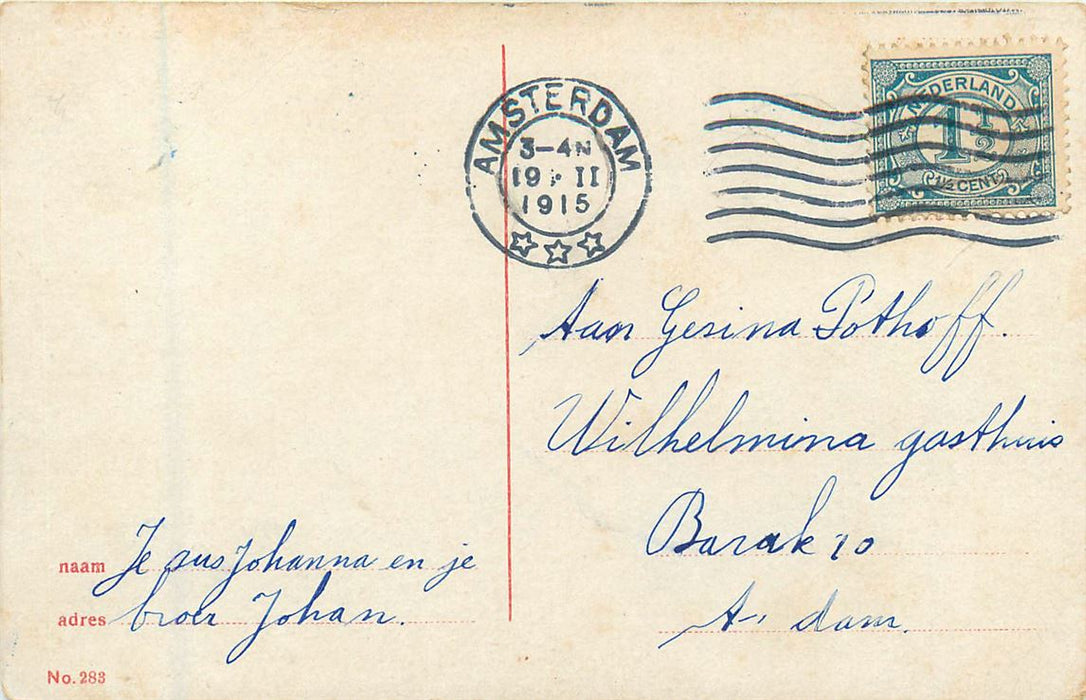 AMSTERDAM
3-4N
19 II
1915
NEDERLAND
1½
1½ CENT
Aan Gesina Pothoff.
Wilhelmina gasthuis
Barak 10
A. dam.
naam Je zus Johanna en je
adres broer Johan.
No. 283